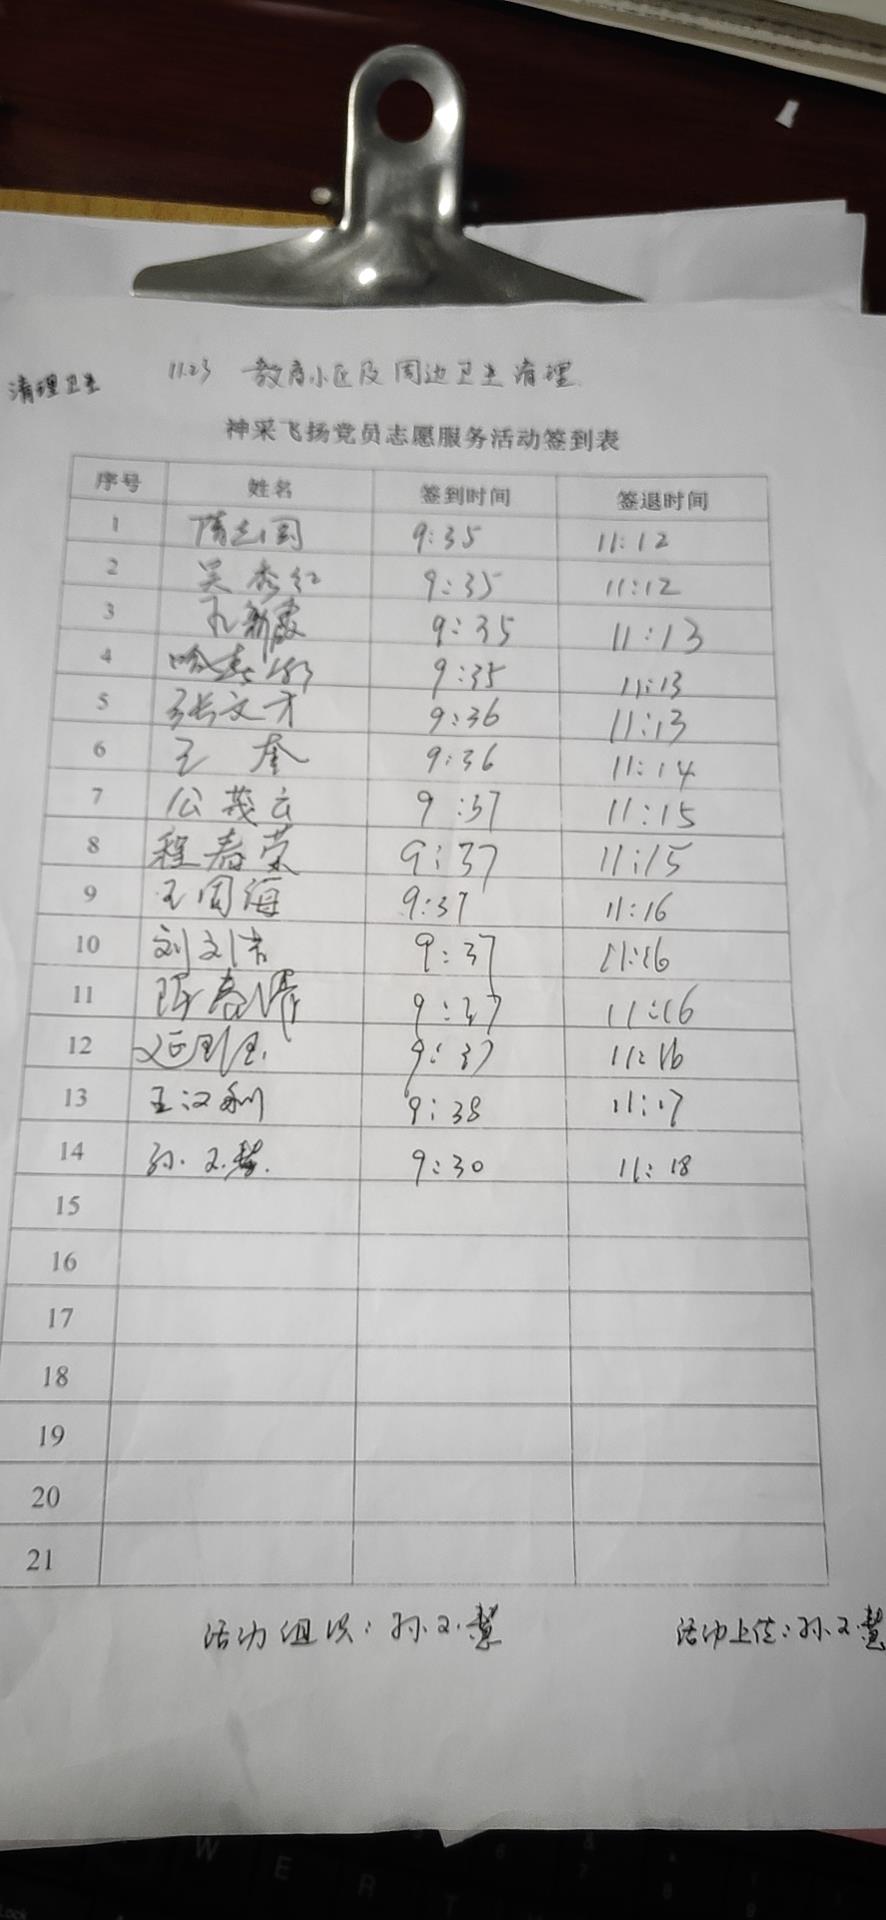 清理卫生 11.23 教育小区及周边卫生清理
神采飞扬党员志愿服务活动签到表
序号 姓名 签到时间 签退时间
1 隋志国 9:35 11:12
2 吴秀红 9:35 11:12
3 孔新霞 9:35 11:13
4 9:35 11:13
5 张文才 9:36 11:13
6 王奎 9:36 11:14
7 公茂云 9:37 11:15
8 程春荣 9:37 11:15
9 王同海 9:37 11:16
10 9:37 11:16
11 陈春 9:37 11:16
12 9:37 11:16
13 王汉利 9:38 11:17
14 孙文慧 9:30 11:18
15
16
17
18
19
20
21
活动组织:孙文慧 活动上传:孙文慧
W
E
R
T